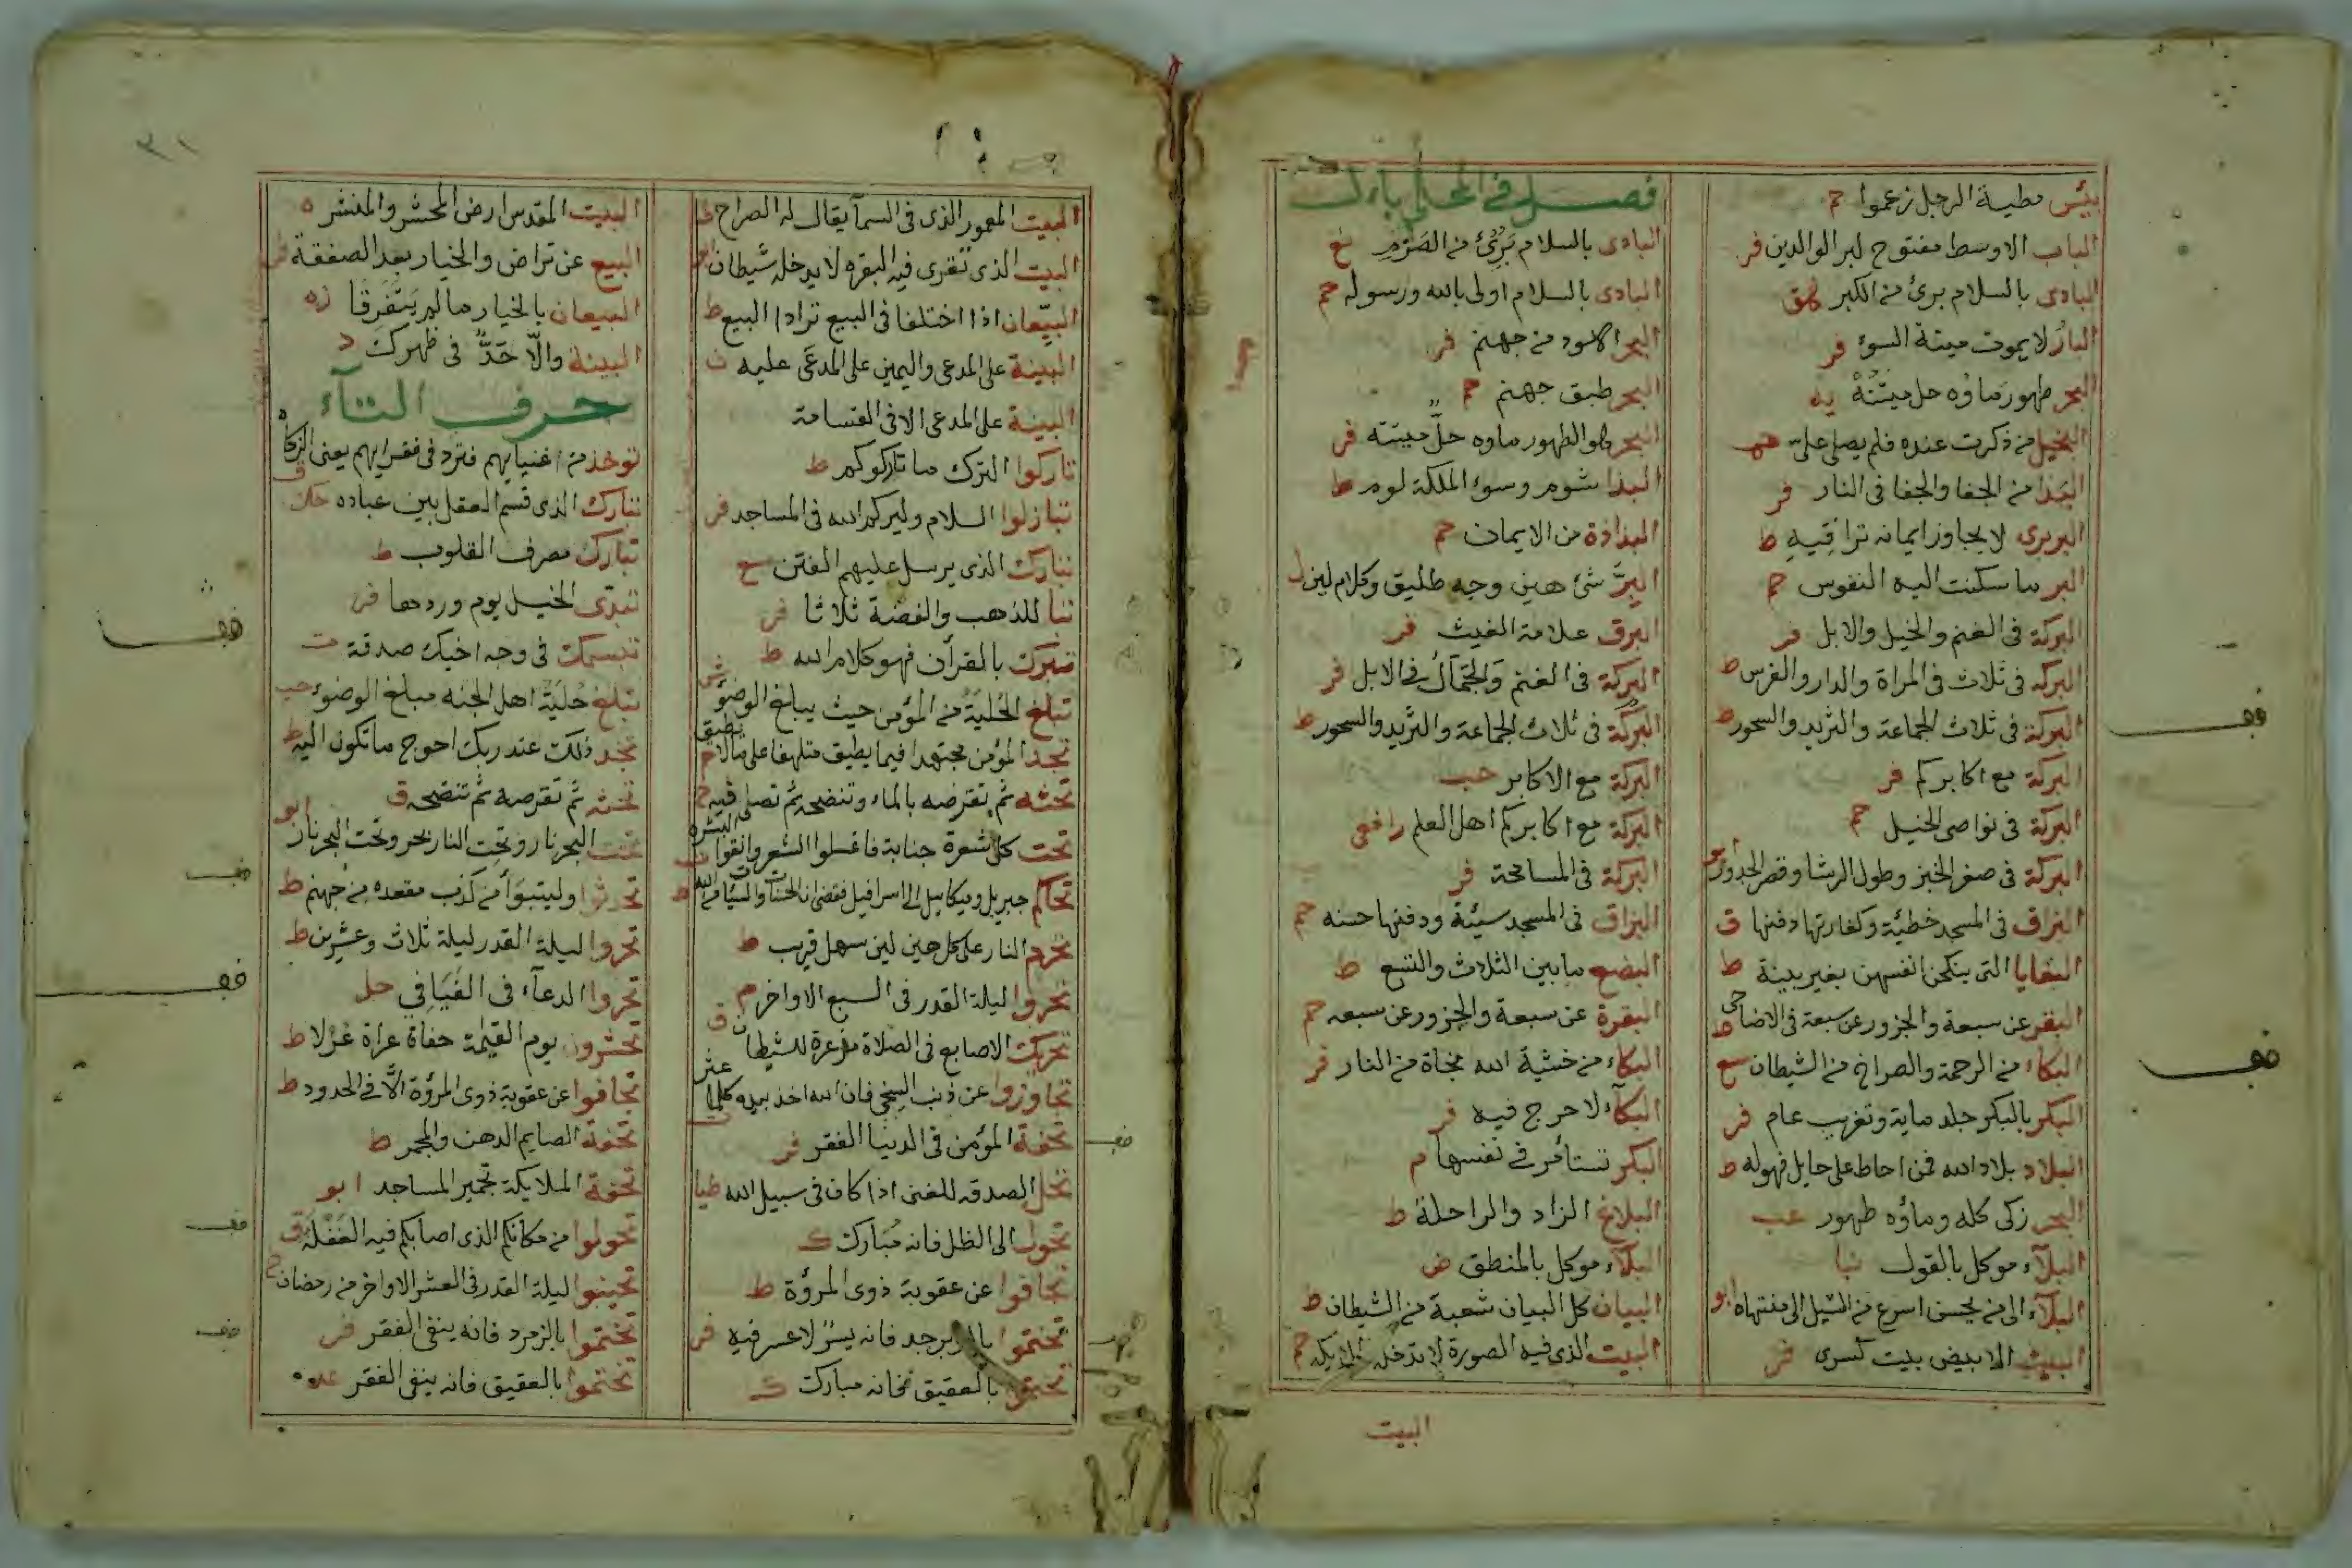 بئس مطية الرجل زعموا حم
الباب الاوسط مفتوح لبر الوالدين فر
البادى بالسلام برئ من الكبر
البار لا يموت ميتة السوء فر
البحر طهور ماؤه حل ميتته يه
البخيل من ذكرت عنده فلم يصلى على
البذا من الجفا والجفا فى النار فر
البربرى لا يجاوز ايمانه تراقيه ط
البر ما سكنت اليه النفوس حم
البركة فى الغنم والخيل والابل فر
البركه فى ثلاث فى المراة والدار والفرس ط
البركة فى ثلاث الجماعة والثريد والسحور ط
البركة مع اكابركم فر
البركة فى نواصى الخيل حم
البركة فى صغر الخبز وطول الرشا وقصر الجدول ابو
البزاق فى المسجد خطئية وكفارتها دفنها ق
البغايا التى ينكحن انفسهن بغير بينة ط
البقر عن سبعة والجزور عن سبعة فى الاضاحى ط
البكاء من الرحمة والصراخ من الشيطان سع
البكر بالبكر جلد ماية وتغريب عام فر
البلاد بلاد الله فمن احاط على حايل فهوله ط
البحر زكى كله وماؤه طهور عب
البلآء موكل بالقول نبا
البلآء الى من يحبنى اسرع من السيل الى منتهاه ابو
البيت الابيض بيت كسرى فر
فصل فى المحلى بال
البادى بالسلام برئ من الصرم خ
البادى بالسلام اولى بالله ورسوله حم
البحر الاسود من جهنم فر
البحر طبق جهنم حم
البحر هو الطهور ماوه حل ميتته فر
البذا شوم وسوء الملكة لوم ط
البذاذة من الايمان حم
البر شئ هين وجه طليق وكلام لين ل
البرق علامة الغيث فر
البركة فى الغنم والجمال فى الابل فر
البركة فى ثلاث الجماعة والثريد والسحور ط
البركة مع الاكابر حب
البركة مع اكابركم اهل العلم رافعى
البركة فى المسامحة فر
البزاق فى المسجد سيئة ودفنها حسنه حم
البضع ما بين الثلاث والتسع ط
البقرة عن سبعة والجزور عن سبعه حم
البكاء من خشية الله نجاة من النار فر
البكآء لا حرج فيه فر
البكر تستأمر فى نفسها م
البلاغ الزاد والراحلة ط
البلآء موكل بالمنطق ض
البيان كل البيان شعبة من الشيطان ط
البيت الذى فيه الصورة لا تدخله الملايكه حم
البيت
٣١
البيت المعمور الذى فى السمآ يقال له الصراح ط
البيت الذى تقرى فيه البقره لا يدخله شيطان ابو
البيّعان اذا اختلفا فى البيع ترادا البيع ط
البينة على المدعى واليمين على المدعى عليه ت
البينة على المدعى الا فى القسامة
تاركوا الترك ما تاركوكم ط
تباذلوا السلام وليركم الله فى المساجد فر
تبارك الذى يرسل عليهم الفتن سع
تبا للذهب والفضة ثلاثا فر
تبرك بالقرآن فهو كلام الله ط
تبلغ الحلية من المؤمن حيث يبلغ الوضوء ش
تجد المؤمن مجتهدا فيما يطيق متلهفا على ما لا يطيق م
تحته ثم تقرضه بالماء وتنضحه ثم تصلى فيه
تحت كل شعرة جنابة فاغسلوا الشعر وانقوا البشره ت
تحاكم جبريل وميكاييل الى اسرافيل فقضى ان الحسنات والسيئات من الله ط
تحرم النار على كل هين لين سهل قريب ط
تحروا ليلة القدر فى السبع الاواخر م
تحريك الاصابع فى الصلاة مذعرة للشيطان ق
تجاوزوا عن ذنب السخى فان الله اخذ بيده كلما عثر ت
تحفة المؤمن فى الدنيا الفقر فر
تحل الصدقه للغنى اذا كان فى سبيل الله طيا
تحول الى الظل فانه مبارك ك
تجافوا عن عقوبة ذوى المرؤة ط
تختموا بالزبرجد فانه يسر لا عسر فيه فر
تختموا بالعقيق فانه مبارك ك
البيت المقدس ارض المحشر والمنشر ه
البيع عن تراض والخيار بعد الصفقة
البيعان بالخيار ما لم يتفرقا زه
البينة والّا حدٌّ فى ظهرك د
حرف التآء
توخذ من اغنيايهم فترد فى فقرايهم يعنى الزكاه ق
تبارك الذى قسم العقل بين عباده حك
تبارك مصرف القلوب ط
تبدى الخيل يوم وردها فر
تبسمك فى وجه اخيك صدقة ت
تبلغ حلية اهل الجنه مبلغ الوضوء حب
تجد ذلك عند ربك احوج ما تكون اليه ط
تحته ثم تقرصه ثم تنضحه ق
تحت البحر نار وتحت النار بحر وتحت البحر نار ابو
تحدثوا وليتبوأ من كذب مقعده من جهنم ط
تحروا ليلة القدر ليلة ثلاث وعشرين ط
تحروا الدعآء فى الفيافى حل
تحشرون يوم القيمة حفاة عراة غرلا ط
تجافوا عن عقوبة ذوى المرؤة الّا فى الحدود ط
تحفة الصايم الدهن والمجمر ط
تحفة الملايكة تجمير المساجد ابو
تحولوا من مكانكم الذى اصابكم فيه الغفلة ق
تحينوا ليلة القدر فى العشر الاواخر من رمضان
تختموا بالزمرد فانه ينفى الفقر فر
تختموا بالعقيق فانه ينفى الفقر عد